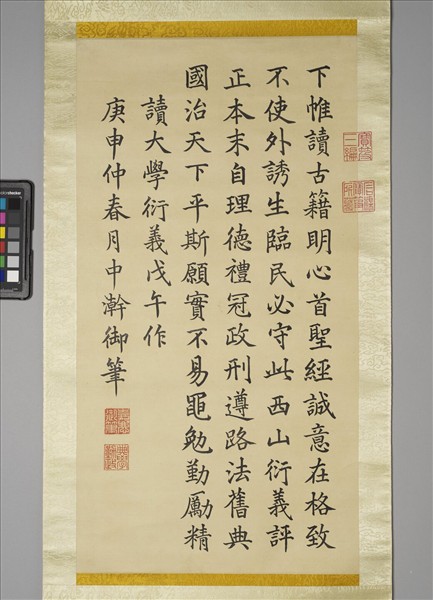 下帷讀古籍明心首聖經誠意在格致
不使外誘生臨民必守此西山衍義評
正本末自理德禮冠政刑遵路法舊典
國治天下平斯願實不易黽勉勤勵精
讀大學衍義戊午作
庚申仲春月中澣御筆